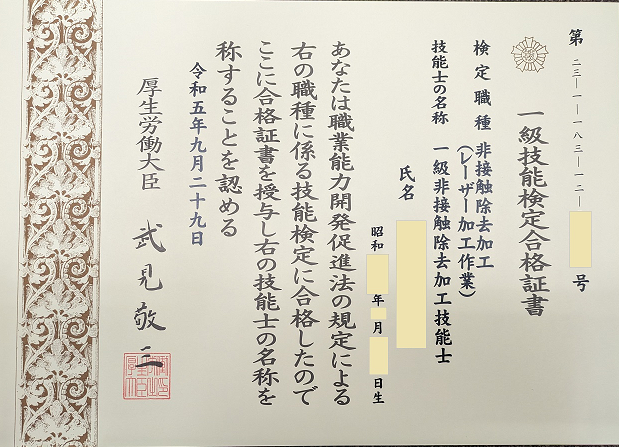 第二三―一―一八三―一二―号
一級技能検定合格証書
検定職種 非接触除去加工
（レーザー加工作業）
技能士の名称 一級非接触除去加工技能士
氏名
昭和年月日生
あなたは職業能力開発促進法の規定による
右の職種に係る技能検定に合格したので
ここに合格証書を授与し右の技能士の名称を
称することを認める
令和五年九月二十九日
厚生労働大臣 武見敬三